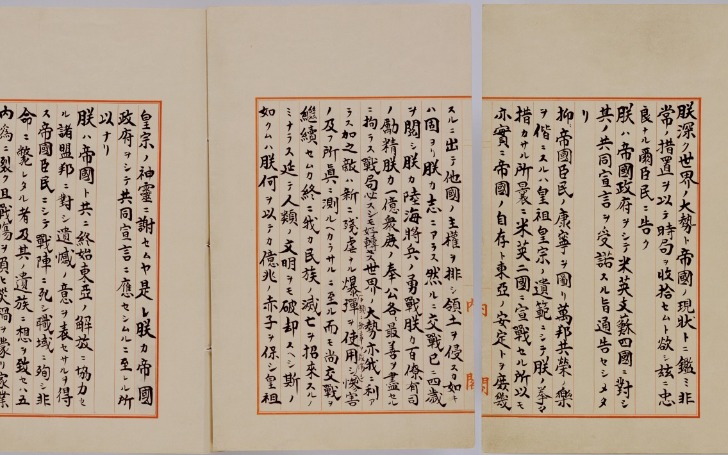 朕深ク世界ノ大勢ト帝國ノ現狀トニ鑑ミ非
常ノ措置ヲ以テ時局ヲ收拾セムト欲シ茲ニ忠
良ナル爾臣民ニ告ク
朕ハ帝國政府ヲシテ米英支蘇四國ニ對シ
其ノ共同宣言ヲ受諾スル旨通告セシメタ
リ
抑帝國臣民ノ康寧ヲ圖リ萬邦共榮ノ樂
ヲ偕ニスルハ皇祖皇宗ノ遺範ニシテ朕ノ拳々
措カサル所曩ニ米英二國ニ宣戰セル所以モ
亦實ニ帝國ノ自存ト東亞ノ安定トヲ庶幾
內閣
スルニ出テ他國ノ主權ヲ排シ領土ヲ侵スカ如キ
ハ固ヨリ朕カ志ニアラス然ルニ交戰已ニ四歲
ヲ閲シ朕カ陸海將兵ノ勇戰朕カ百僚有司
ノ勵精朕カ一億衆庶ノ奉公各最善ヲ盡セル
ニ拘ラス戰局必スシモ好轉セス世界ノ大勢亦我ニ利ア
ラス加之敵ハ新ニ殘虐ナル爆彈ヲ使用シ慘害
ノ及フ所眞ニ測ルヘカラサルニ至ル而モ尚交戰ヲ
繼續セムカ終ニ我カ民族ノ滅亡ヲ招來スルノ
ミナラス延テ人類ノ文明ヲモ破却スヘシ斯ノ
如クムハ朕何ヲ以テカ億兆ノ赤子ヲ保シ皇祖
皇宗ノ神靈ニ謝セムヤ是レ朕カ帝國
政府ヲシテ共同宣言ニ應セシムルニ至レル所
以ナリ
朕ハ帝國ト共ニ終始東亞ノ解放ニ協力セ
ル諸盟邦ニ對シ遺憾ノ意ヲ表セサルヲ得
ス帝國臣民ニシテ戰陣ニ死シ職域ニ殉シ非
命ニ斃レタル者及其ノ遺族ニ想ヲ致セハ五
內爲ニ裂ク且戰傷ヲ負ヒ災禍ヲ蒙リ家業